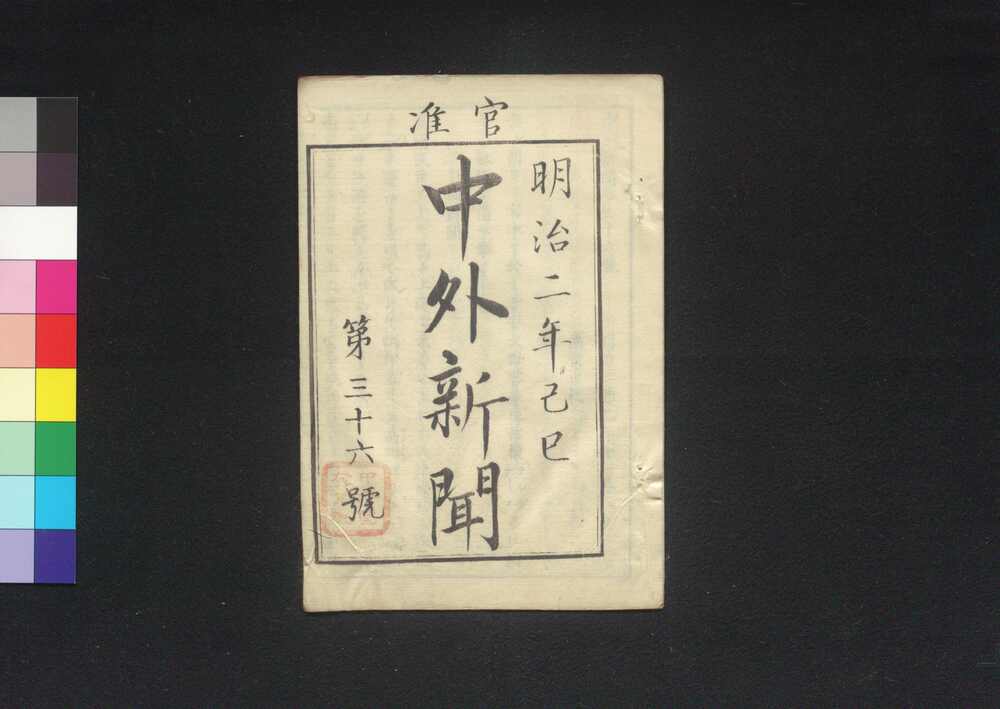 官准
明治二年己巳
中外新聞
第三十六號